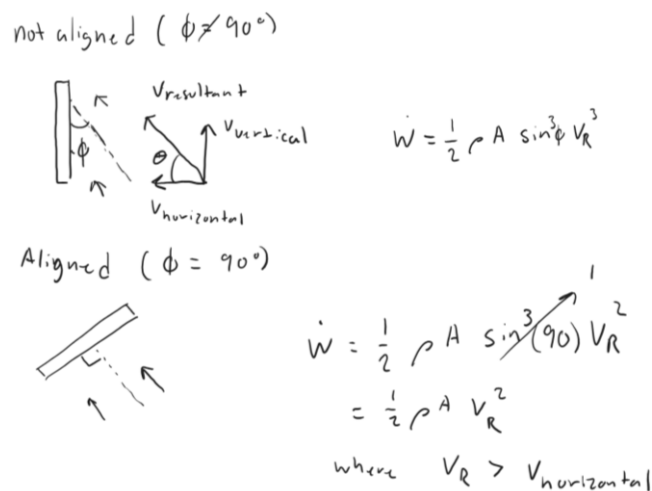 not aligned ( ϕ ≠ 90° )
V resultant
V vertical
ϕ
θ
V horizontal
Ẇ = 1/2 ρ A sin³ϕ V_R³
Aligned ( ϕ = 90° )
1
Ẇ = 1/2 ρ A sin³(90) V_R²
= 1/2 ρ A V_R²
where V_R > V horizontal